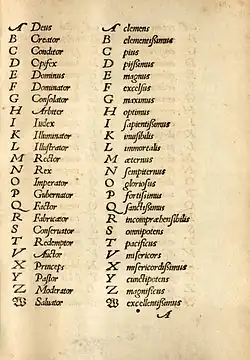 A Deus A clemens
B Creator B clementissimus
C Conditor C pius
D Opifex D pijssimus
E Dominus E magnus
F Dominator F excelsus
G Consolator G maximus
H Arbiter H optimus
I Iudex I sapientissimus
K Illuminator K inuisibilis
L Illustrator L immortalis
M Rector M æternus
N Rex N sempiternus
O Imperator O gloriosus
P Gubernator P fortissimus
Q Factor Q sanctissimus
R Fabricator R incompræhensibilis
S Conseruator S omnipotens
T Redemptor T pacificus
V Auctor V misericors
X Princeps X misericordissimus
Y Pastor Y cunctipotens
Z Moderator Z magnificus
W Saluator W excellentissimus
A